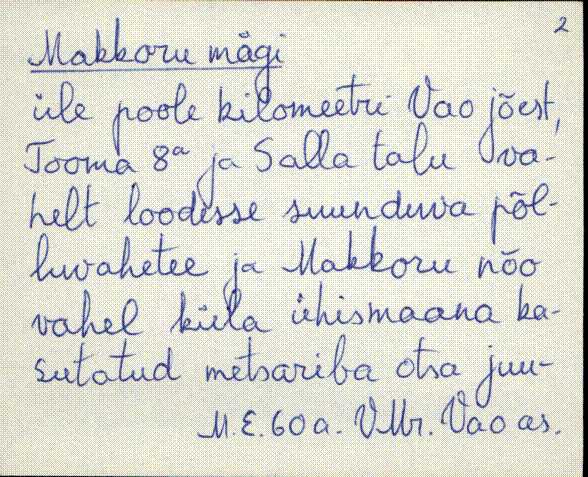 2
Makkoru mägi
üle poole kilomeetri Vao jõest,
Tooma 8ª ja Salla talu va-
helt loodesse suunduva põl-
luvahetee ja Makkoru nõo
vahel küla ühismaana ka-
sutatud metsariba otsa juu-
M.E. 60 a. VMr. Vao as.